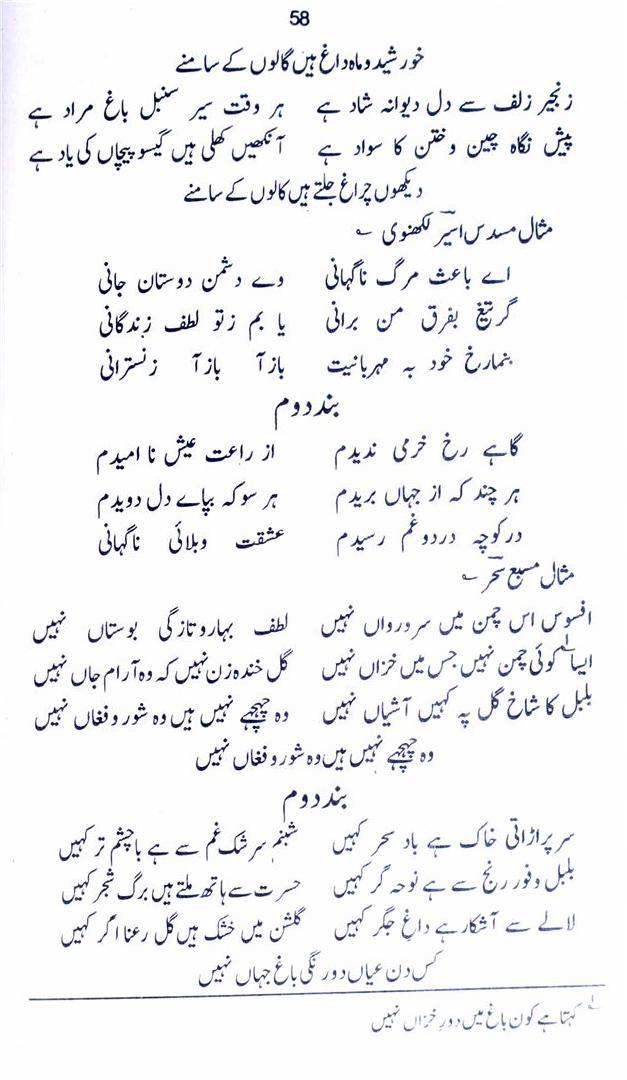 58
خورشید و ماہ داغ ہیں گالوں کے سامنے
زنجیر زلف سے دل دیوانہ شاد ہے ہر وقت سیر سنبل باغ مراد ہے
پیش نگاہ چین و ختن کا سواد ہے آنکھیں کھلی ہیں گیسو پیچاں کی یاد ہے
دیکھوں چراغ جلتے ہیں کالوں کے سامنے
مثال مسدس اسیر لکھنوی ؎
اے باعث مرگ ناگہانی وے دشمن دوستان جانی
گر تیغ بفرق من برانی یا بم ز تو لطف زندگانی
بنمارخ خود بہ مہربانیت باز آ باز آ زنسترانی
بند دوم
گاہے رخ خرمی ندیدم از راعت عیش نا امیدم
ہر چند کہ از جہاں بریدم ہر سو کہ بپاے دل دویدم
در کوچہ درد و غم رسیدم عشقت وبلائی ناگہانی
مثال مسبع سحر ؎
افسوس اس چمن میں سرورواں نہیں لطف بہار و تازگی بوستاں نہیں
ایسا لے کوئی چمن نہیں جس میں خزاں نہیں گل خندہ زن نہیں کہ وہ آرام جاں نہیں
بلبل کا شاخ گل پہ کہیں آشیاں نہیں وہ چہچہے نہیں ہیں وہ شور و فغاں نہیں
وہ چہچہے نہیں ہیں وہ شور و فغاں نہیں
بند دوم
سر پر اڑاتی خاک ہے باد سحر کہیں شبنم سرشک غم سے ہے باچشم تر کہیں
بلبل وفور رنج سے ہے نوحہ گر کہیں حسرت سے ہاتھ ملتے ہیں برگ شجر کہیں
لالے سے آشکار ہے داغ جگر کہیں گلشن میں خشک ہیں گل رعنا اگر کہیں
کس دن عیاں دورنگی باغ جہاں نہیں
لے کہتا ہے کون باغ میں دورِ خزاں نہیں